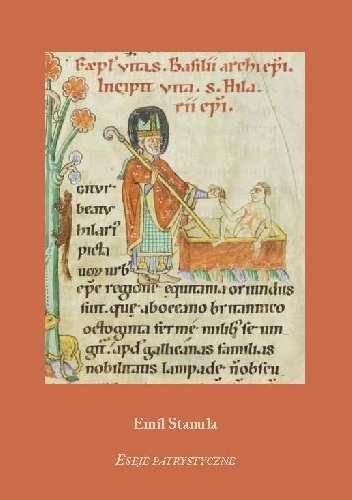 Expl' vitas. Basilii archi epi.
Incipit vita. s. Hila
rii epi.
gitur
beatus
hilari'
picta
uoꝝ urb
epc regione equitania oriundus
fuit. que ab oceano britannico
octoginta ferme milib' seiun
git. apd gallicanas familias
nobilitatis lampade n obscu
Emil Stanula
ESEJE PATRYSTYCZNE